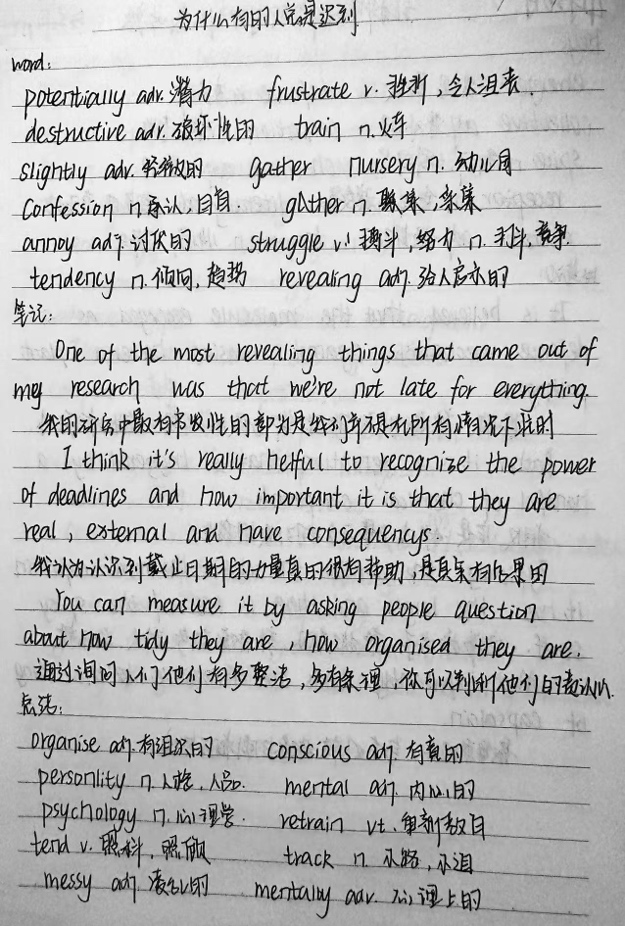 为什么有的人总是迟到
word:
potentially adv. 潜力 frustrate v. 挫折,令人沮丧.
destructive adv. 破坏性的 train n. 火车
slightly adv. 轻微的 gather nursery n. 幼儿园
Confession n 承认,自首. gather n. 聚集,采集
annoy adj. 讨厌的 struggle v. 奋斗,努力 n. 斗,竞争.
tendency n. 倾向,趋势 revealing adj. 给人启示的
笔记:
One of the most revealing things that came out of
my research was that we're not late for everything.
我的研究中最有启发性的部分是我们并很在所有情况下准时
I think it's really helful to recognize the power
of deadlines and how important it is that they are
real, external and have consequencys.
我认为认识到截止日期的力量真的很有帮助,是真实有后果的
You can measure it by asking people question
about how tidy they are, how organised they are.
通过询问人们他们有多整洁,多有条理,你可以判断他们的
总结:
organise adj. 有组织的 conscious adj. 有意的
personlity n. 人格.人品. mental adj. 内心的
psychology n. 心理学. retrain vt. 重新教育
tend v. 照料,照顾 track n. 小路,小道
messy adj. 凌乱的 mentally adv. 心理上的